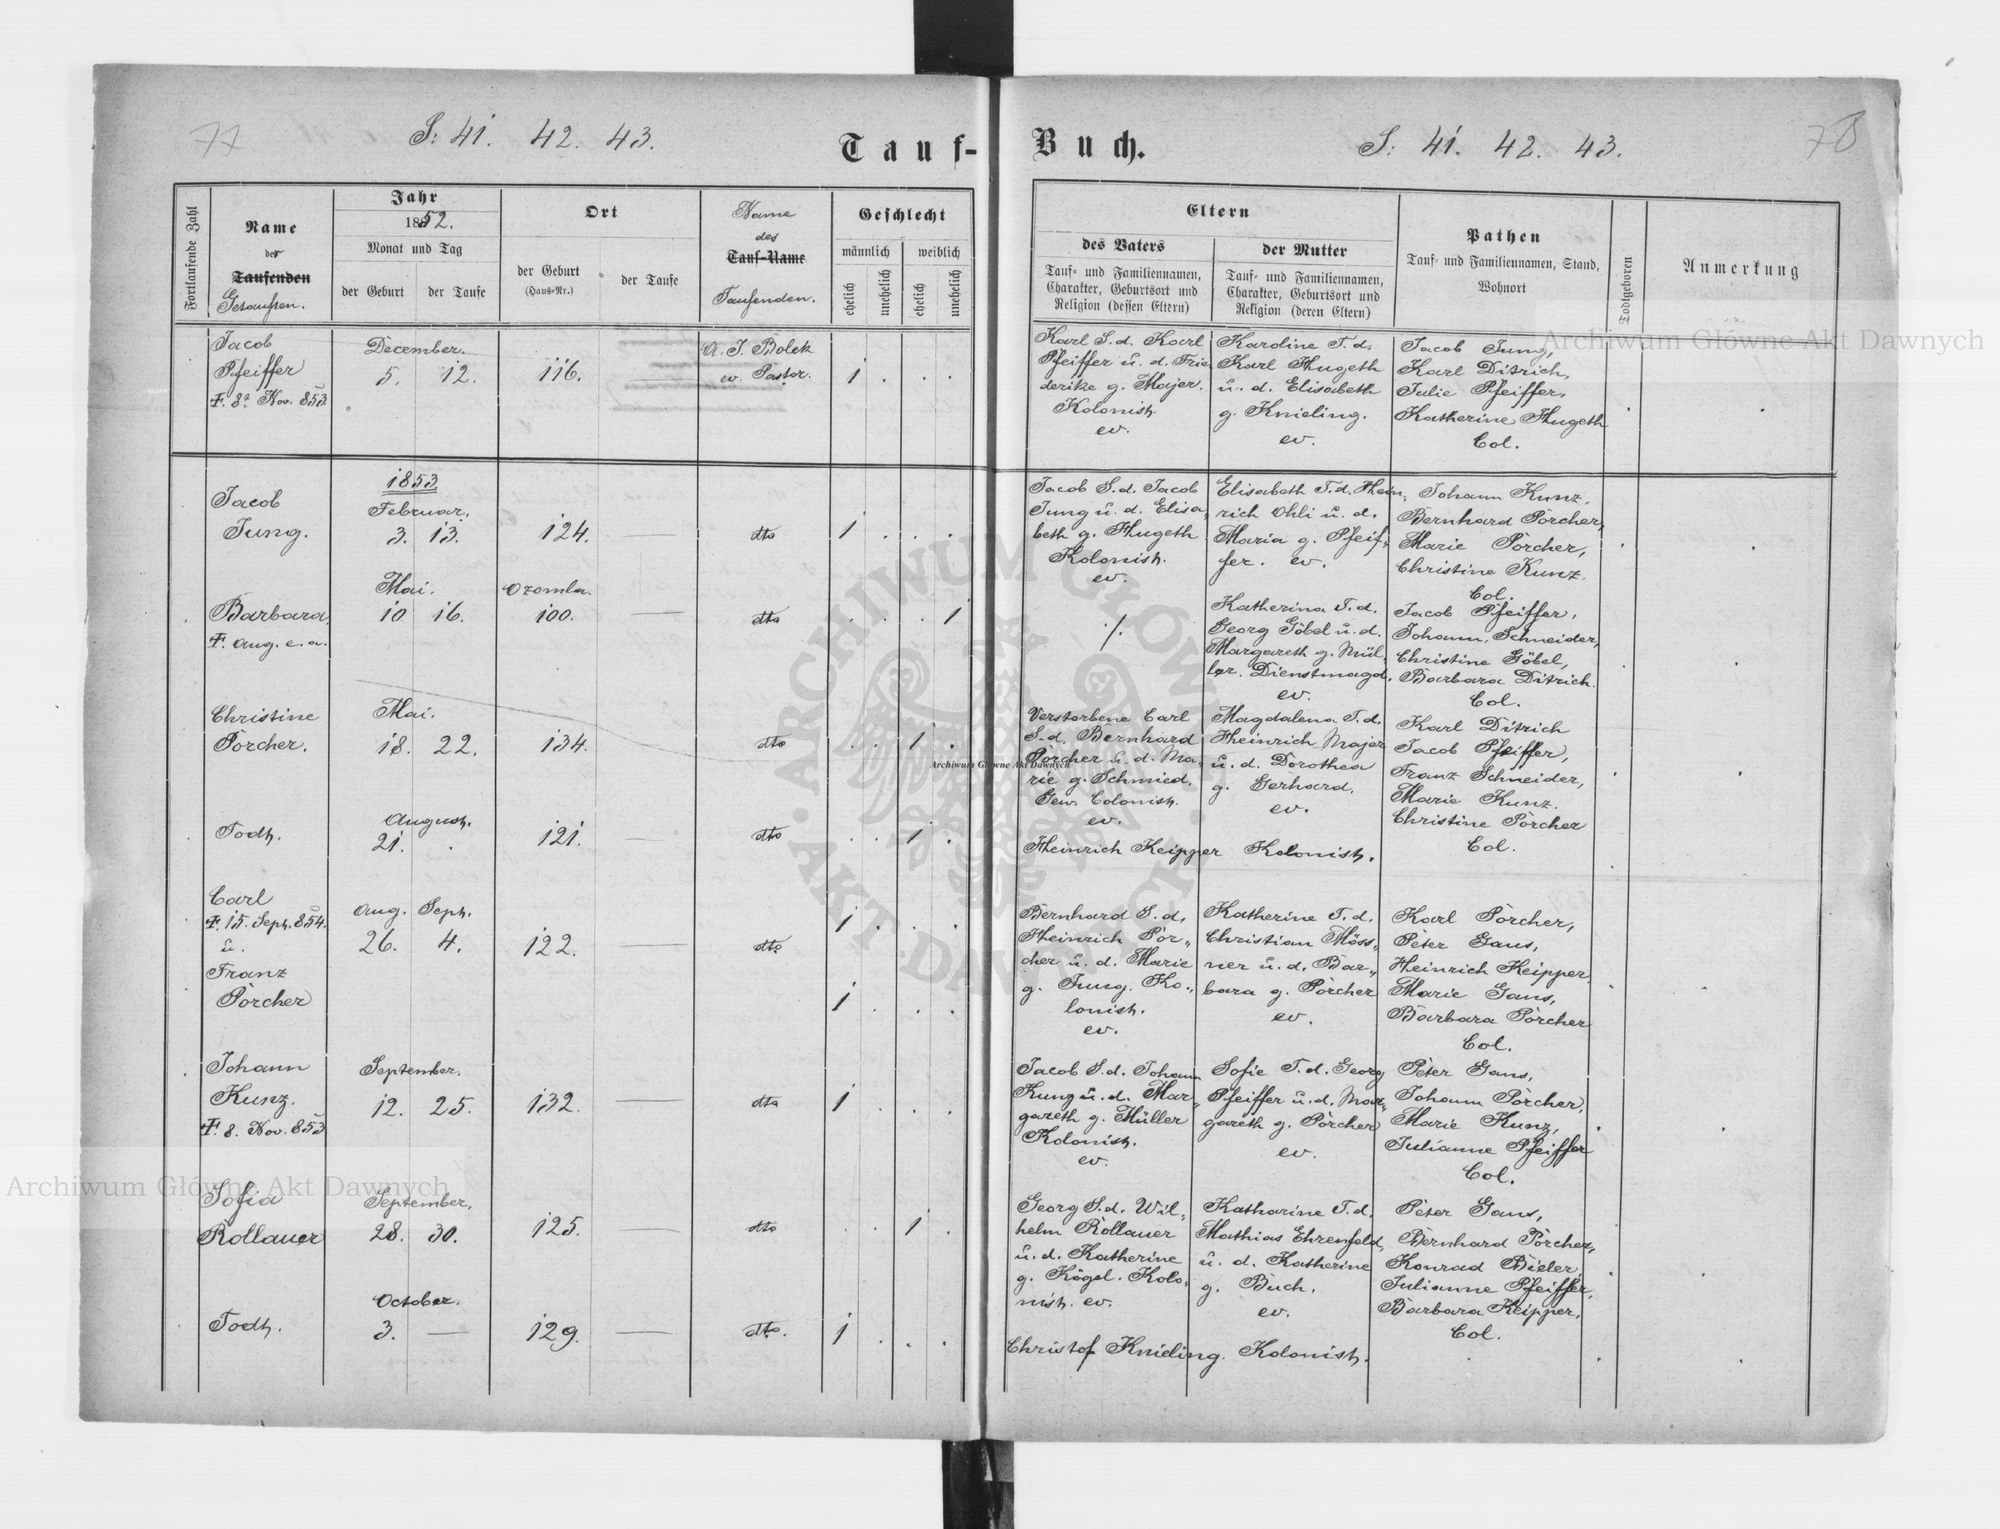 77
S: 41. 42. 43.
Tauf-
Buch.
S: 41. 42. 43.
78
Fortlaufende Zahl
Name
des
Taufenden
Getauften.
Jahr
1852.
Monat und Tag
der Geburt
der Taufe
Ort
der Geburt
(Haus-Nr.)
der Taufe
Name
des
Tauf-Name
Taufenden.
Geschlecht
männlich
weiblich
ehelich
unehelich
ehelich
unehelich
Eltern
des Vaters
Tauf- und Familiennamen,
Charakter, Geburtsort und
Religion (dessen Eltern)
der Mutter
Tauf- und Familiennamen,
Charakter, Geburtsort und
Religion (deren Eltern)
Pathen
Tauf- und Familiennamen, Stand,
Wohnort
Todtgeboren
Anmerkung
Jacob
Pfeiffer
Ŧ. 8t Nov. 853
December.
5. 12.
116.
A. J. Bolek
ev. Pastor.
1 . . .
Karl S. d. Karl
Pfeiffer u. d. Frie
derike g. Majer.
Kolonist.
ev.
Karoline T. d.
Karl Hugeth
u. d. Elisabeth
g. Knieling.
ev.
Jacob Jung,
Karl Ditrich,
Julie Pfeiffer,
Katherine Hugeth
Col.
Jacob
Jung.
1853
Februar.
3. 13.
124.
dto
1 . . .
Jacob S. d. Jacob
Jung u. d. Elisa„
beth g. Hugeth
Kolonist.
ev.
Elisabeth T. d. Hein„
rich Ohli u. d.
Maria g. Pfeif„
fer. ev.
Johann Kunz,
Bernhard Porcher,
Marie Porcher,
Christine Kunz.
Col.
Barbara
Ŧ. Aug. e. a.
Mai.
10. 16.
Ozomla.
100.
dto
. . . 1
./.
Katherina T. d.
Georg Göbel u. d.
Margareth g. Mül„
ler. Dienstmagd.
ev.
Jacob Pfeiffer,
Johann Schneider,
Christine Göbel,
Barbara Ditrich.
Col.
Christine
Porcher.
Mai.
18. 22.
134.
dto
. . 1 .
Verstorbene Carl
S. d. Bernhard
Porcher u. d. Ma„
rie g. Schmied.
Gew. Colonist.
ev.
Magdalena T. d.
Heinrich Majer
u. d. Dorothea
g. Gerhard.
ev.
Karl Ditrich
Jacob Pfeiffer,
Franz Schneider,
Marie Kunz.
Christine Porcher
Col.
Todt.
August.
21. .
121.
dto
. . 1 .
Heinrich Keipper Kolonist.
Carl
Ŧ. 15. Sept. 854.
u.
Franz
Porcher
Aug. Sept.
26. 4.
122.
dto
1 . . .
1 . . .
Bernhard S. d.
Heinrich Por„
cher u. d. Marie
g. Jung. Ko„
lonist.
ev.
Katherine T. d.
Christian Möss„
ner u. d. Bar„
bara g. Porcher
ev.
Karl Porcher,
Peter Gans,
Heinrich Keipper,
Marie Gans,
Barbara Porcher
Col.
Johann
Kunz.
Ŧ. 8. Nov. 853
September.
12. 25.
132.
dto
1 . . .
Jacob S. d. Johann
Kung u. d. Mar„
gareth g. Müller
Kolonist.
ev.
Sofie T. d. Georg
Pfeiffer u. d. Mar„
gareth g. Porcher
ev.
Peter Gans,
Johann Porcher,
Marie Kunz,
Julianne Pfeiffer
Col.
Sofia
Rollauer
September.
28. 30.
125.
dto
. . 1 .
Georg S. d. Wil„
helm Rollauer
u. d. Katherine
g. Kögel. Kolo„
nist. ev.
Katharine T. d.
Mathias Ehrenfeld,
u. d. Katherine
g. Buch.
ev.
Peter Gans,
Bernhard Porcher,
Konrad Bieler,
Julianne Pfeiffer,
Barbara Keipper,
Col.
Todt.
October.
3. —
129.
dto.
1 . . .
Christof Knieling. Kolonist.
Archiwum Główne Akt Dawnych
Archiwum Główne Akt Dawnych
Archiwum Główne Akt Dawnych
ARCHIWUM GŁÓWNE • AKT DAWNYCH •